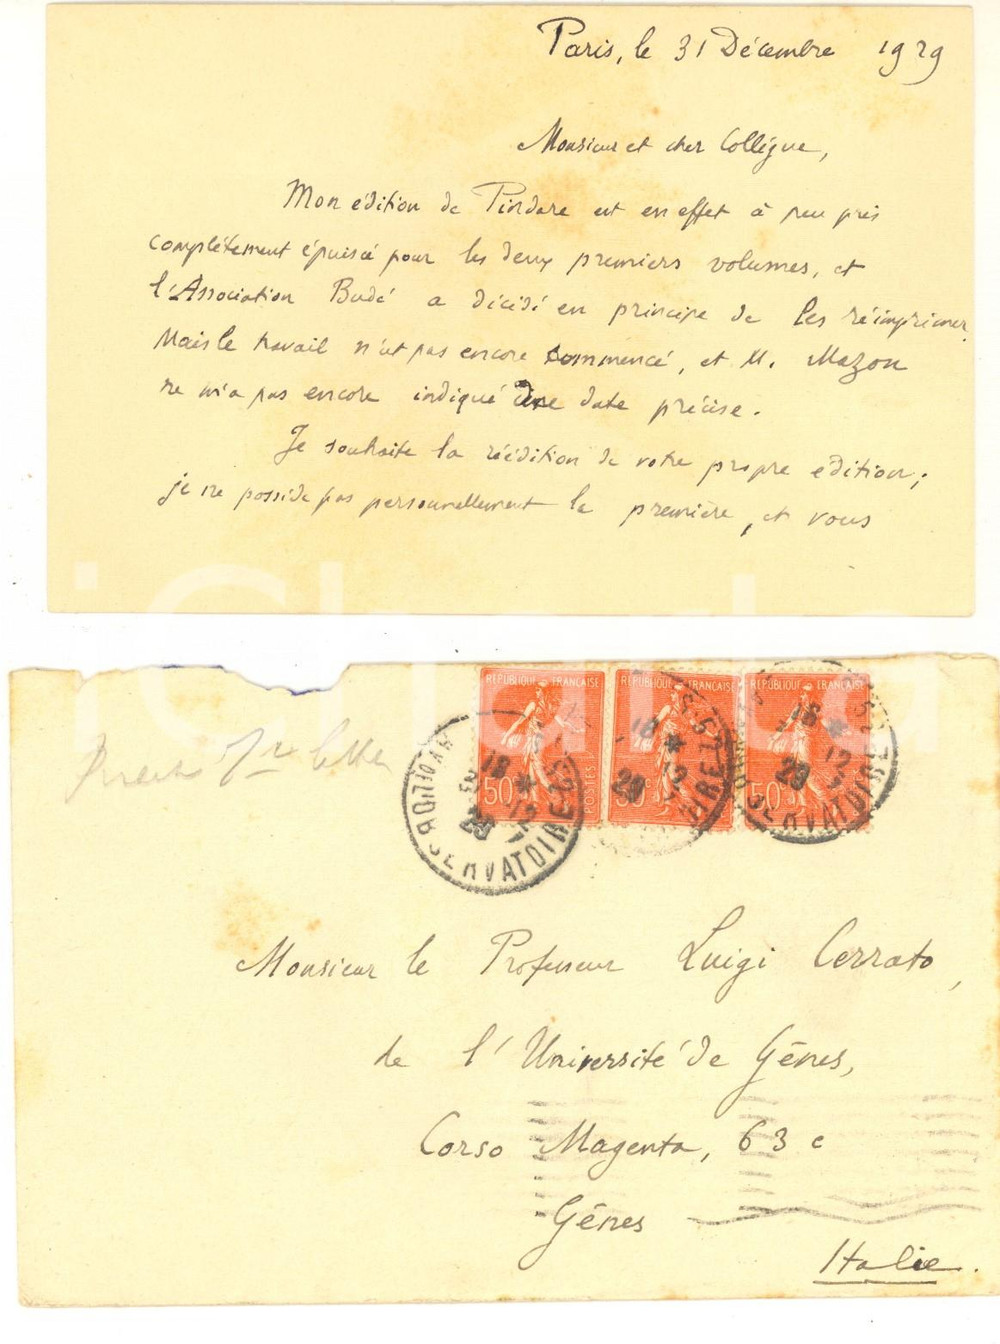 Paris, le 31 Décembre 1929
Monsieur et cher Collègue,
Mon édition de Pindare est en effet à peu près
complètement épuisé pour les deux premiers volumes, et
l'Association Budé a décidé en principe de les réimprimer.
Mais le travail n'est pas encore commencé, et M. Mazon
ne m'a pas encore indiqué une date précise.
Je souhaite la réédition de votre propre édition;
je ne possède pas personnellement la première, et vous
iCharta
REPUBLIQUE FRANÇAISE REPUBLIQUE FRANÇAISE REPUBLIQUE FRANÇAISE
50c POSTES 50c 50c
18 * 12 29
OBSERVATOIRE
Monsieur le Professeur Luigi Cerrato,
de l'Université de Gênes,
Corso Magenta, 63 c
Gênes
Italie.